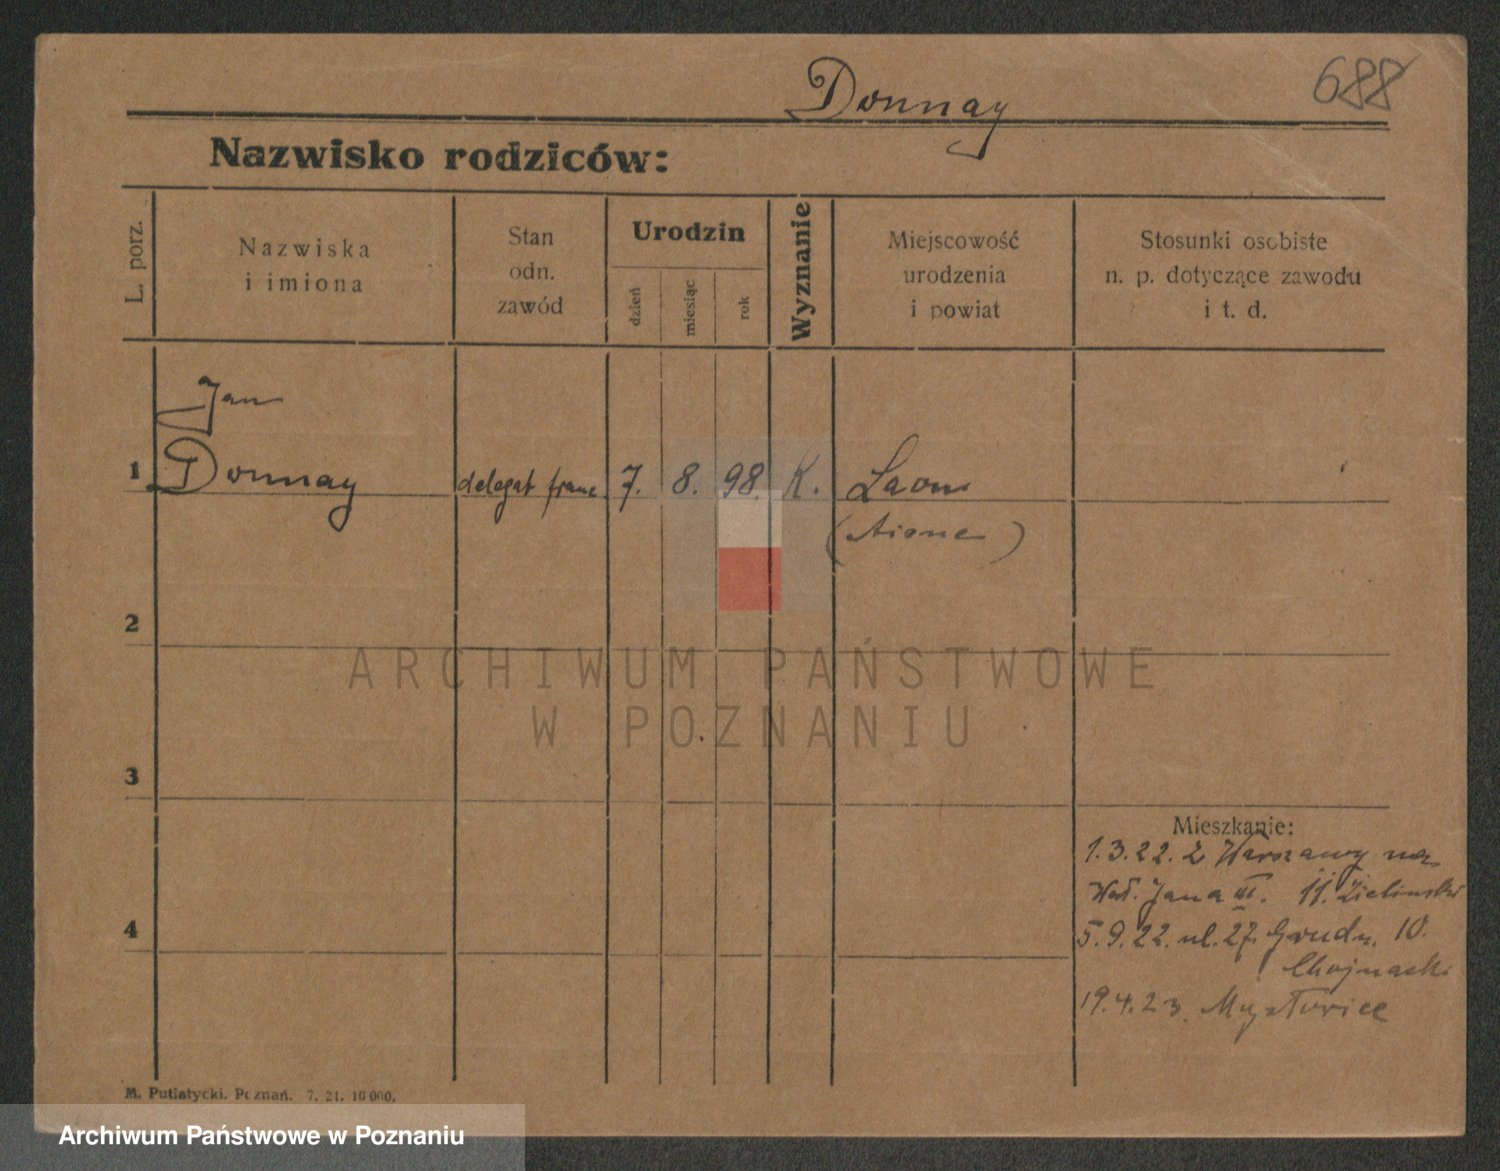 Donnay
688
Nazwisko rodziców:
L. porz.
Nazwiska
i imiona
Stan
odn.
zawód
Urodzin
dzień
miesiąc
rok
Wyznanie
Miejscowość
urodzenia
i powiat
Stosunki osobiste
n. p. dotyczące zawodu
i t. d.
Jan
1 Donnay delegat franc 7. 8. 98. K. Laon
(Aisne)
2
ARCHIWUM PAŃSTWOWE
W POZNANIU
3
Mieszkanie:
1.3.22. z Warszawy na
Wał. Jana III. 11. Zieliński
4
5.9.22. ul. 27. Grudn. 10.
Chojnacki
19.4.23. Mysłowice
M. Putiatycki. Poznań. 7. 21. 10 000.
Archiwum Państwowe w Poznaniu